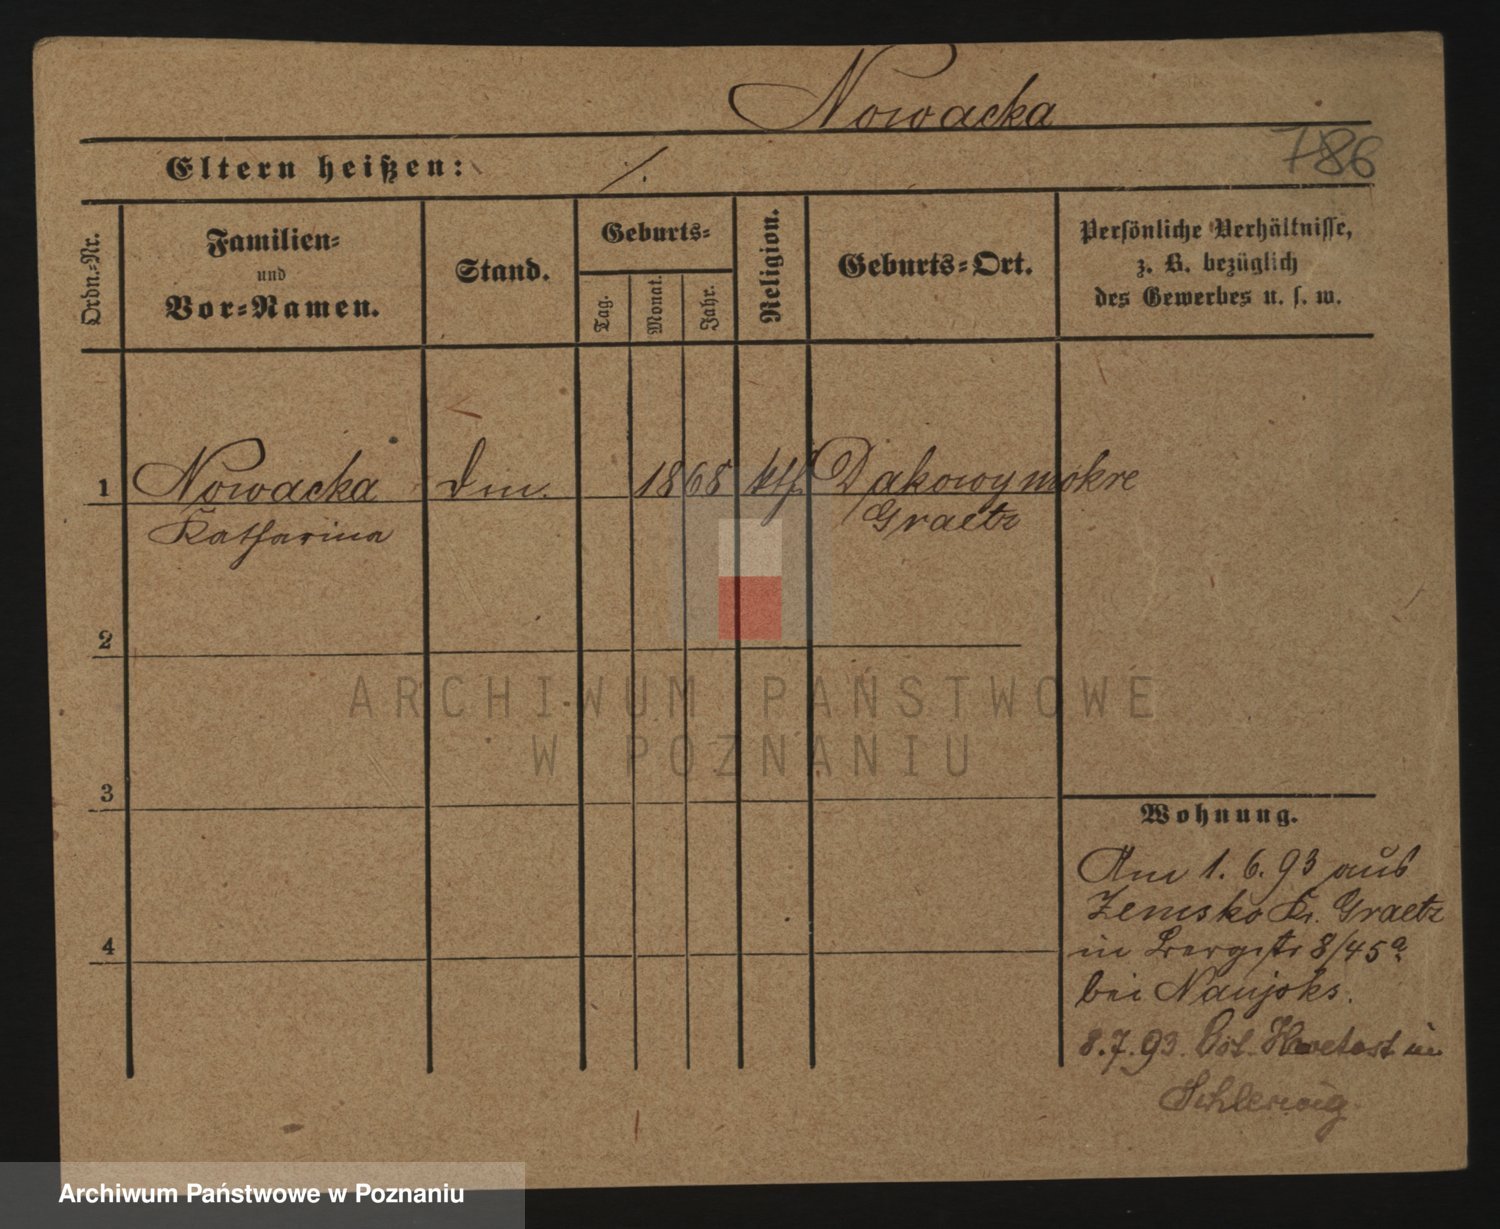 Nowacka
786
Eltern heißen: ./.
Ordn.-Nr.
Familien-
und
Vor-Namen.
Stand.
Geburts-
Tag.
Monat.
Jahr.
Religion.
Geburts-Ort.
Persönliche Verhältnisse,
z. B. bezüglich
des Gewerbes u. s. w.
1 Nowacka 1868 ktf. Dakowymokre
Katharina Graetz
2
3
4
ARCHIWUM PAŃSTWOWE
W POZNANIU
Wohnung.
Am 1. 6. 93 aus
Zemsko Kr. Graetz
in Bergstr 8/45a
bei Naujoks.
8.7.93. in
Archiwum Państwowe w Poznaniu